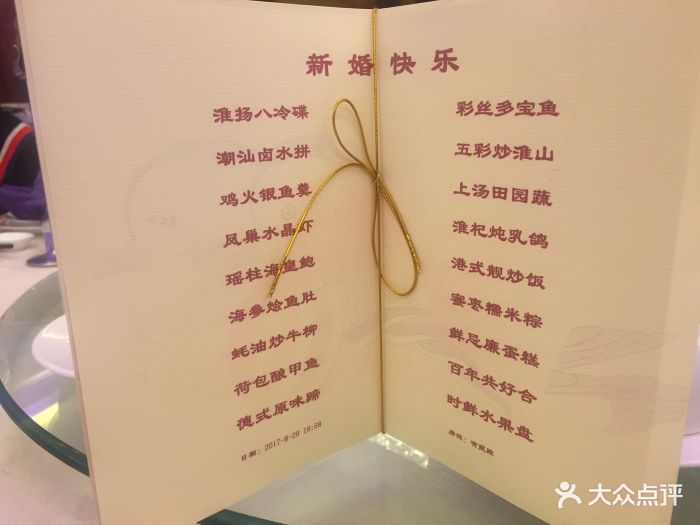 新婚快乐
淮扬八冷碟
潮汕卤水拼
鸡火银鱼羹
凤巢水晶虾
瑶柱海皇鲍
海参烩鱼肚
蚝油炒牛柳
荷包酿甲鱼
德式原味蹄
日期：2017-8-29 18:58
彩丝多宝鱼
五彩炒淮山
上汤田园蔬
淮杞炖乳鸽
港式靓炒饭
蜜枣糯米粽
鲜忌廉蛋糕
百年共好合
时鲜水果盘
大众点评